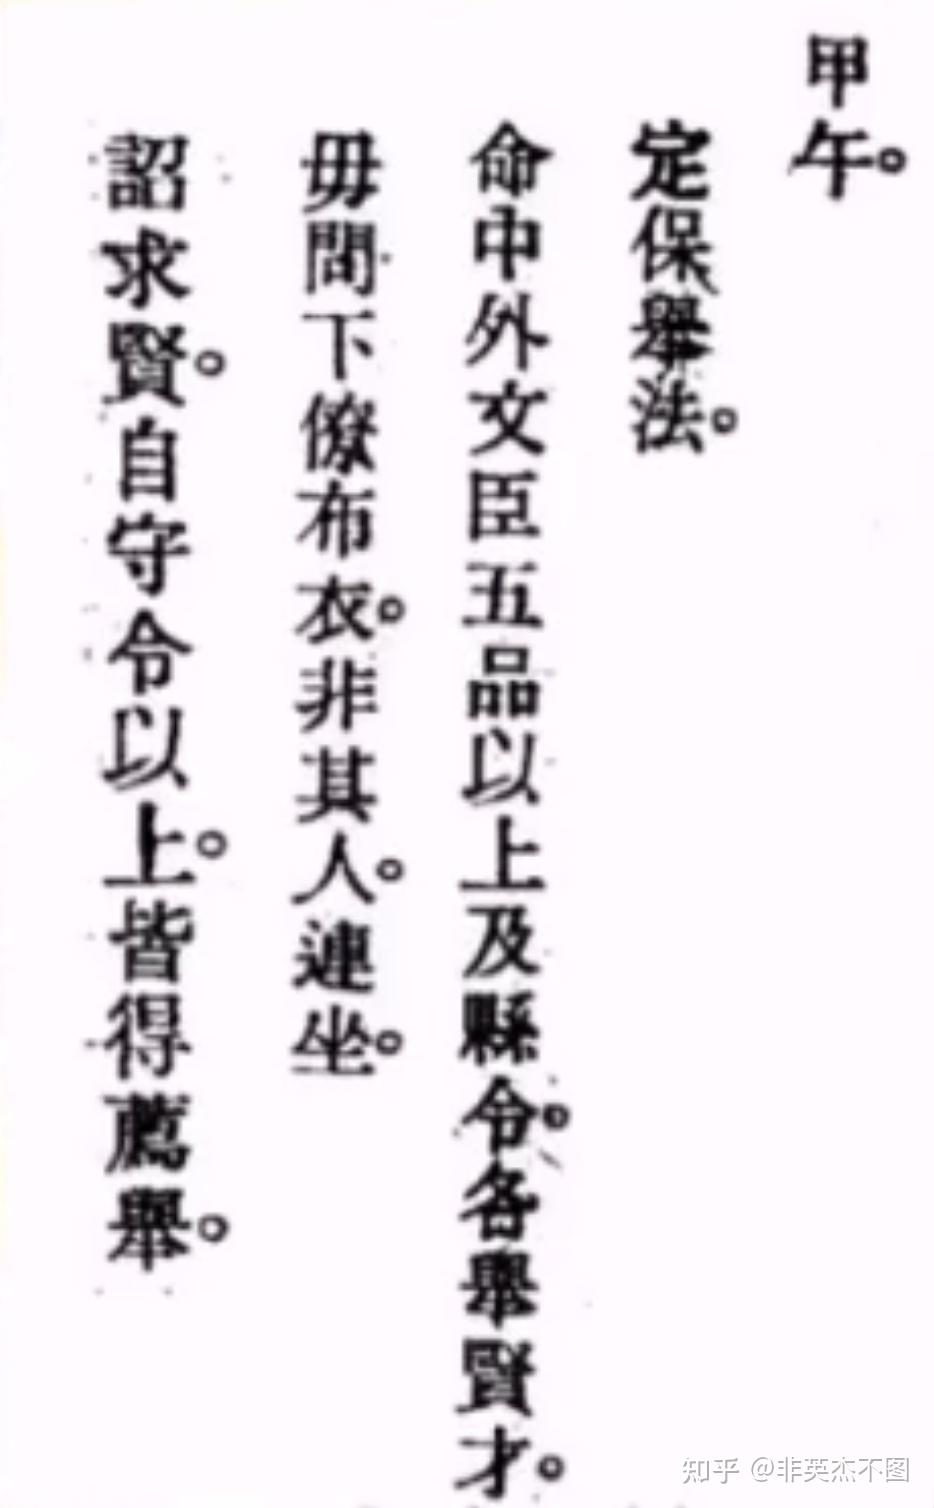 甲午。
定保舉法。
命中外文臣五品以上及縣令。各舉賢才。
毋問下僚布衣。非其人。連坐。
詔求賢。自守令以上。皆得薦舉。
知乎 @非英杰不图